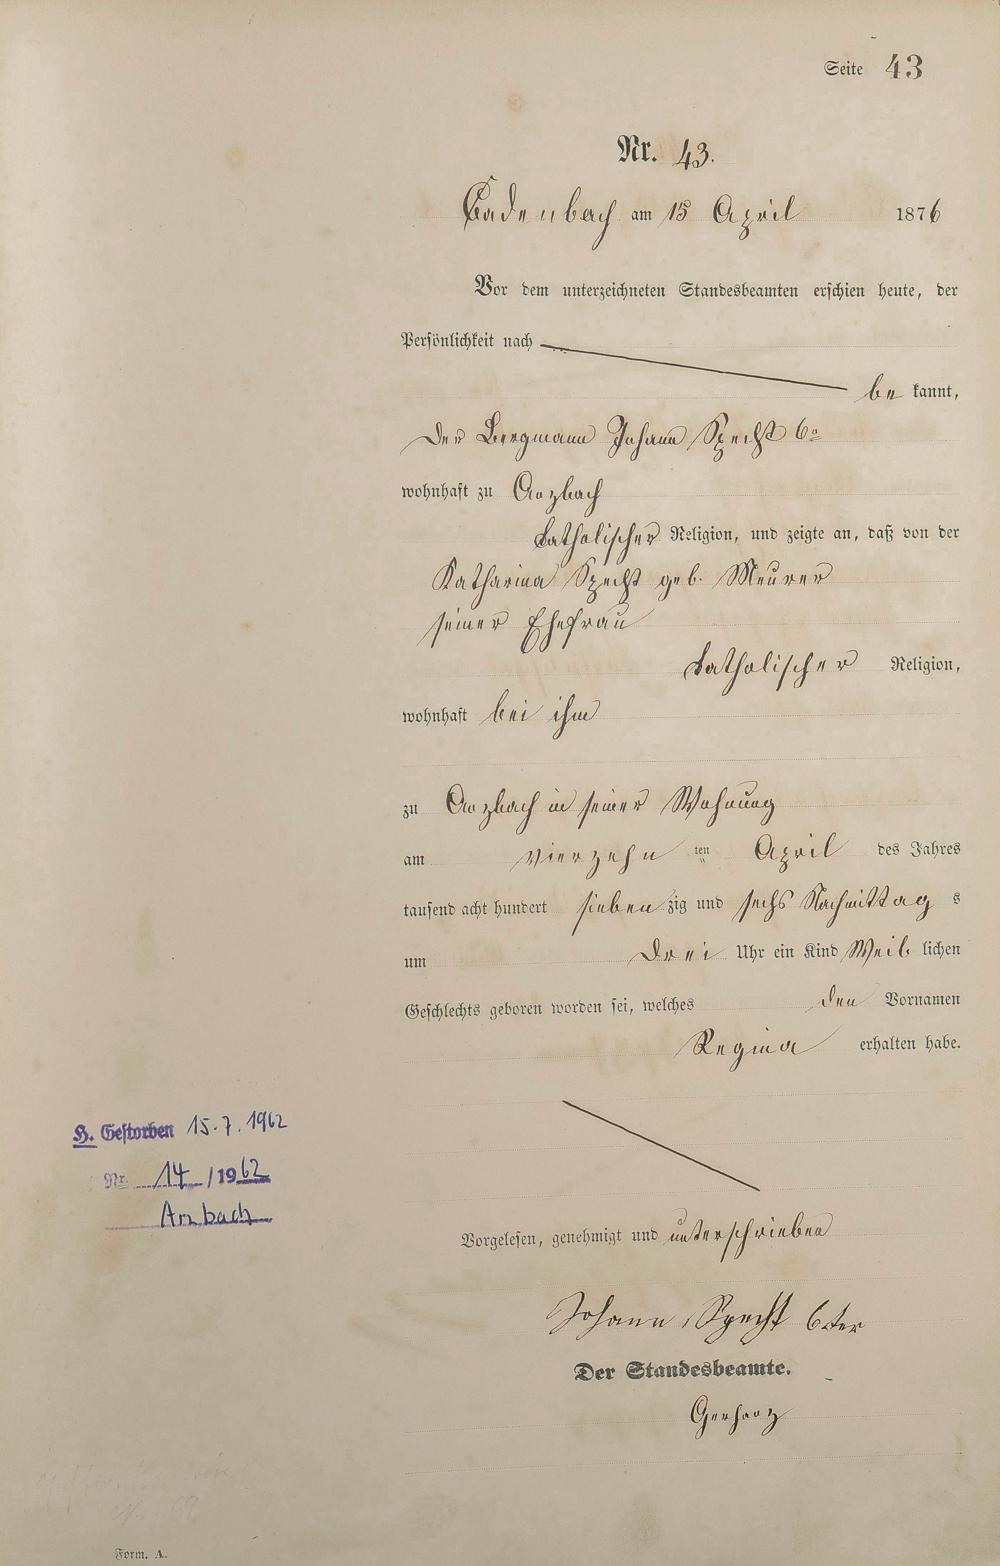 Seite 43
Nr. 43.
Cadenbach am 15 April 1876
Vor dem unterzeichneten Standesbeamten erschien heute, der
Persönlichkeit nach
be kannt,
der Bergmann Johann Specht 6r
wohnhaft zu Arzbach
katholischer Religion, und zeigte an, daß von der
Katharina Specht geb. Meurer
seiner Ehefrau
katholischer Religion,
wohnhaft bei ihm
zu Arzbach in seiner Wohnung
am vierzehn ten April des Jahres
tausend acht hundert sieben zig und sechs Nachmittag s
um drei Uhr ein Kind Weib lichen
Geschlechts geboren worden sei, welches den Vornamen
Regina erhalten habe.
H. Gestorben 15.7.1962
Nr. 14 /1962
Arzbach
Vorgelesen, genehmigt und unterschrieben
Johann Specht 6ter
Der Standesbeamte.
Gerharz
Form. A.